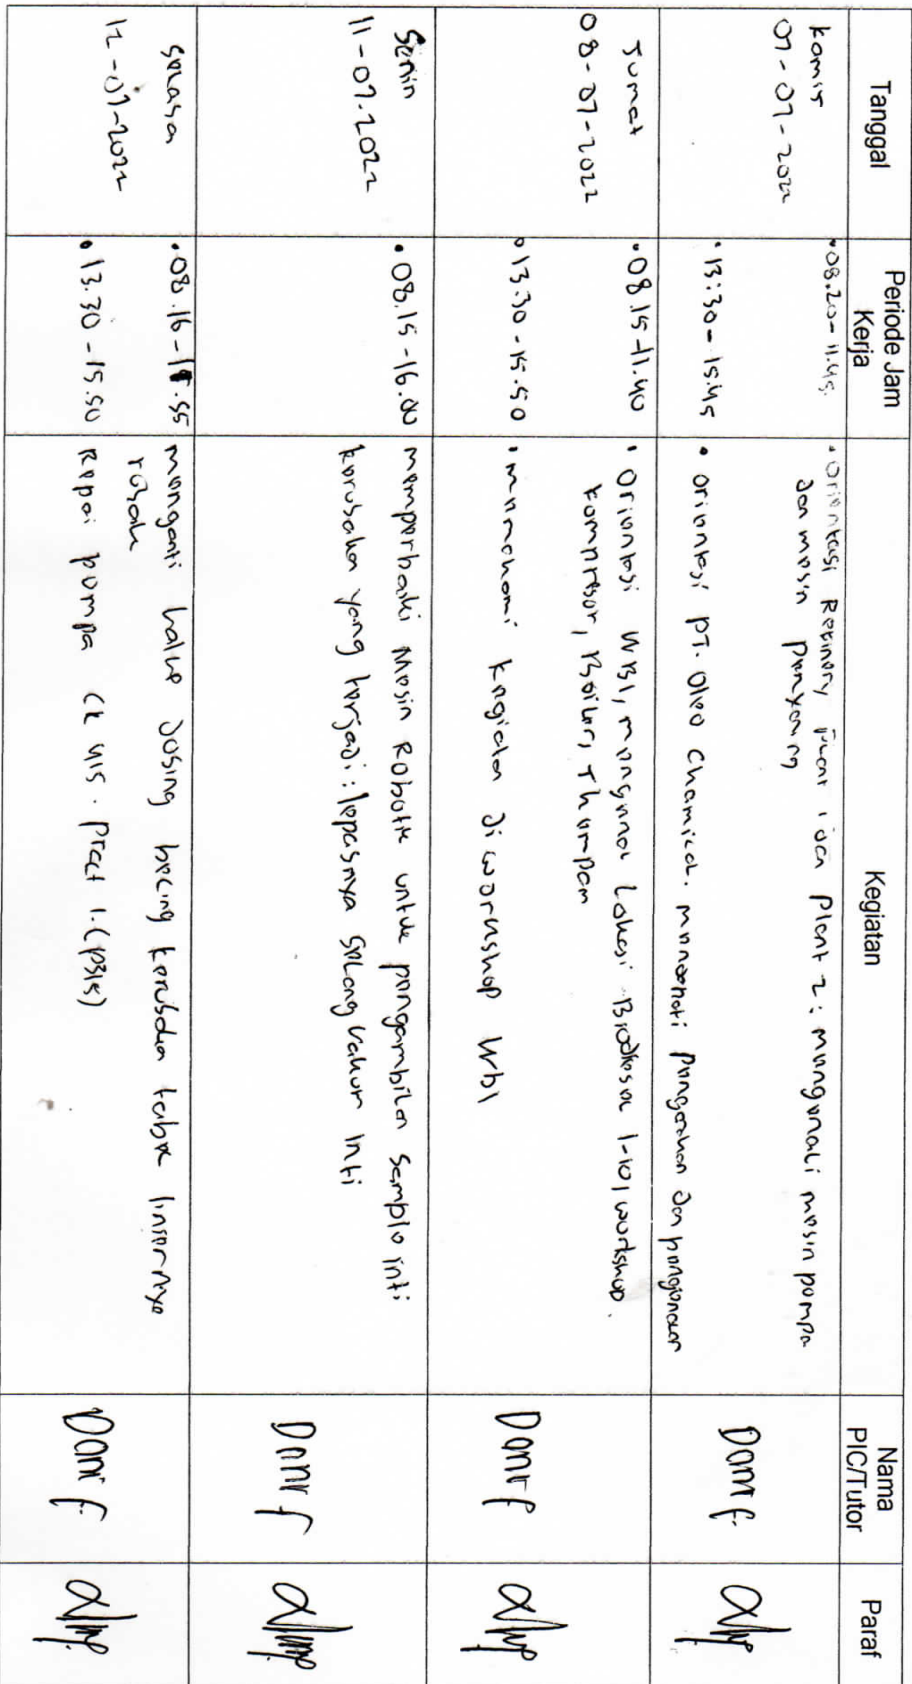 Tanggal
Periode Jam
Kerja
Kegiatan
Nama
PIC/Tutor
Paraf
Kamis
07-07-2022
• 08.20-11.45
• Orientasi Refinery Plant 1 dan Plant 2: mengenali mesin pompa
dan mesin penyaring
• 13:30-15.45
• Orientasi PT. Oleo Chamical. menaati pengarahan dan
Danr f.
Jumat
08-07-2022
• 08.15-11.40
• Orientasi WB1, mengenal Lokasi Biodiesel 1-10, workshop
kompresor, Boiler,
• 13.30-15.50
• memahami kegiatan di workshop wb1
Danr f
Senin
11-07-2022
• 08.15-16.00
memperbaiki Mesin Robotik untuk pengambilan Sample inti
kerusakan yang terjadi: lepasnya selang vakum inti
Danr f
Selasa
12-07-2022
• 08.16-11.55
mengganti valve dosing bering kerusakan linernya
rusak
• 13.30-15.50
Repai pompa
Danr f